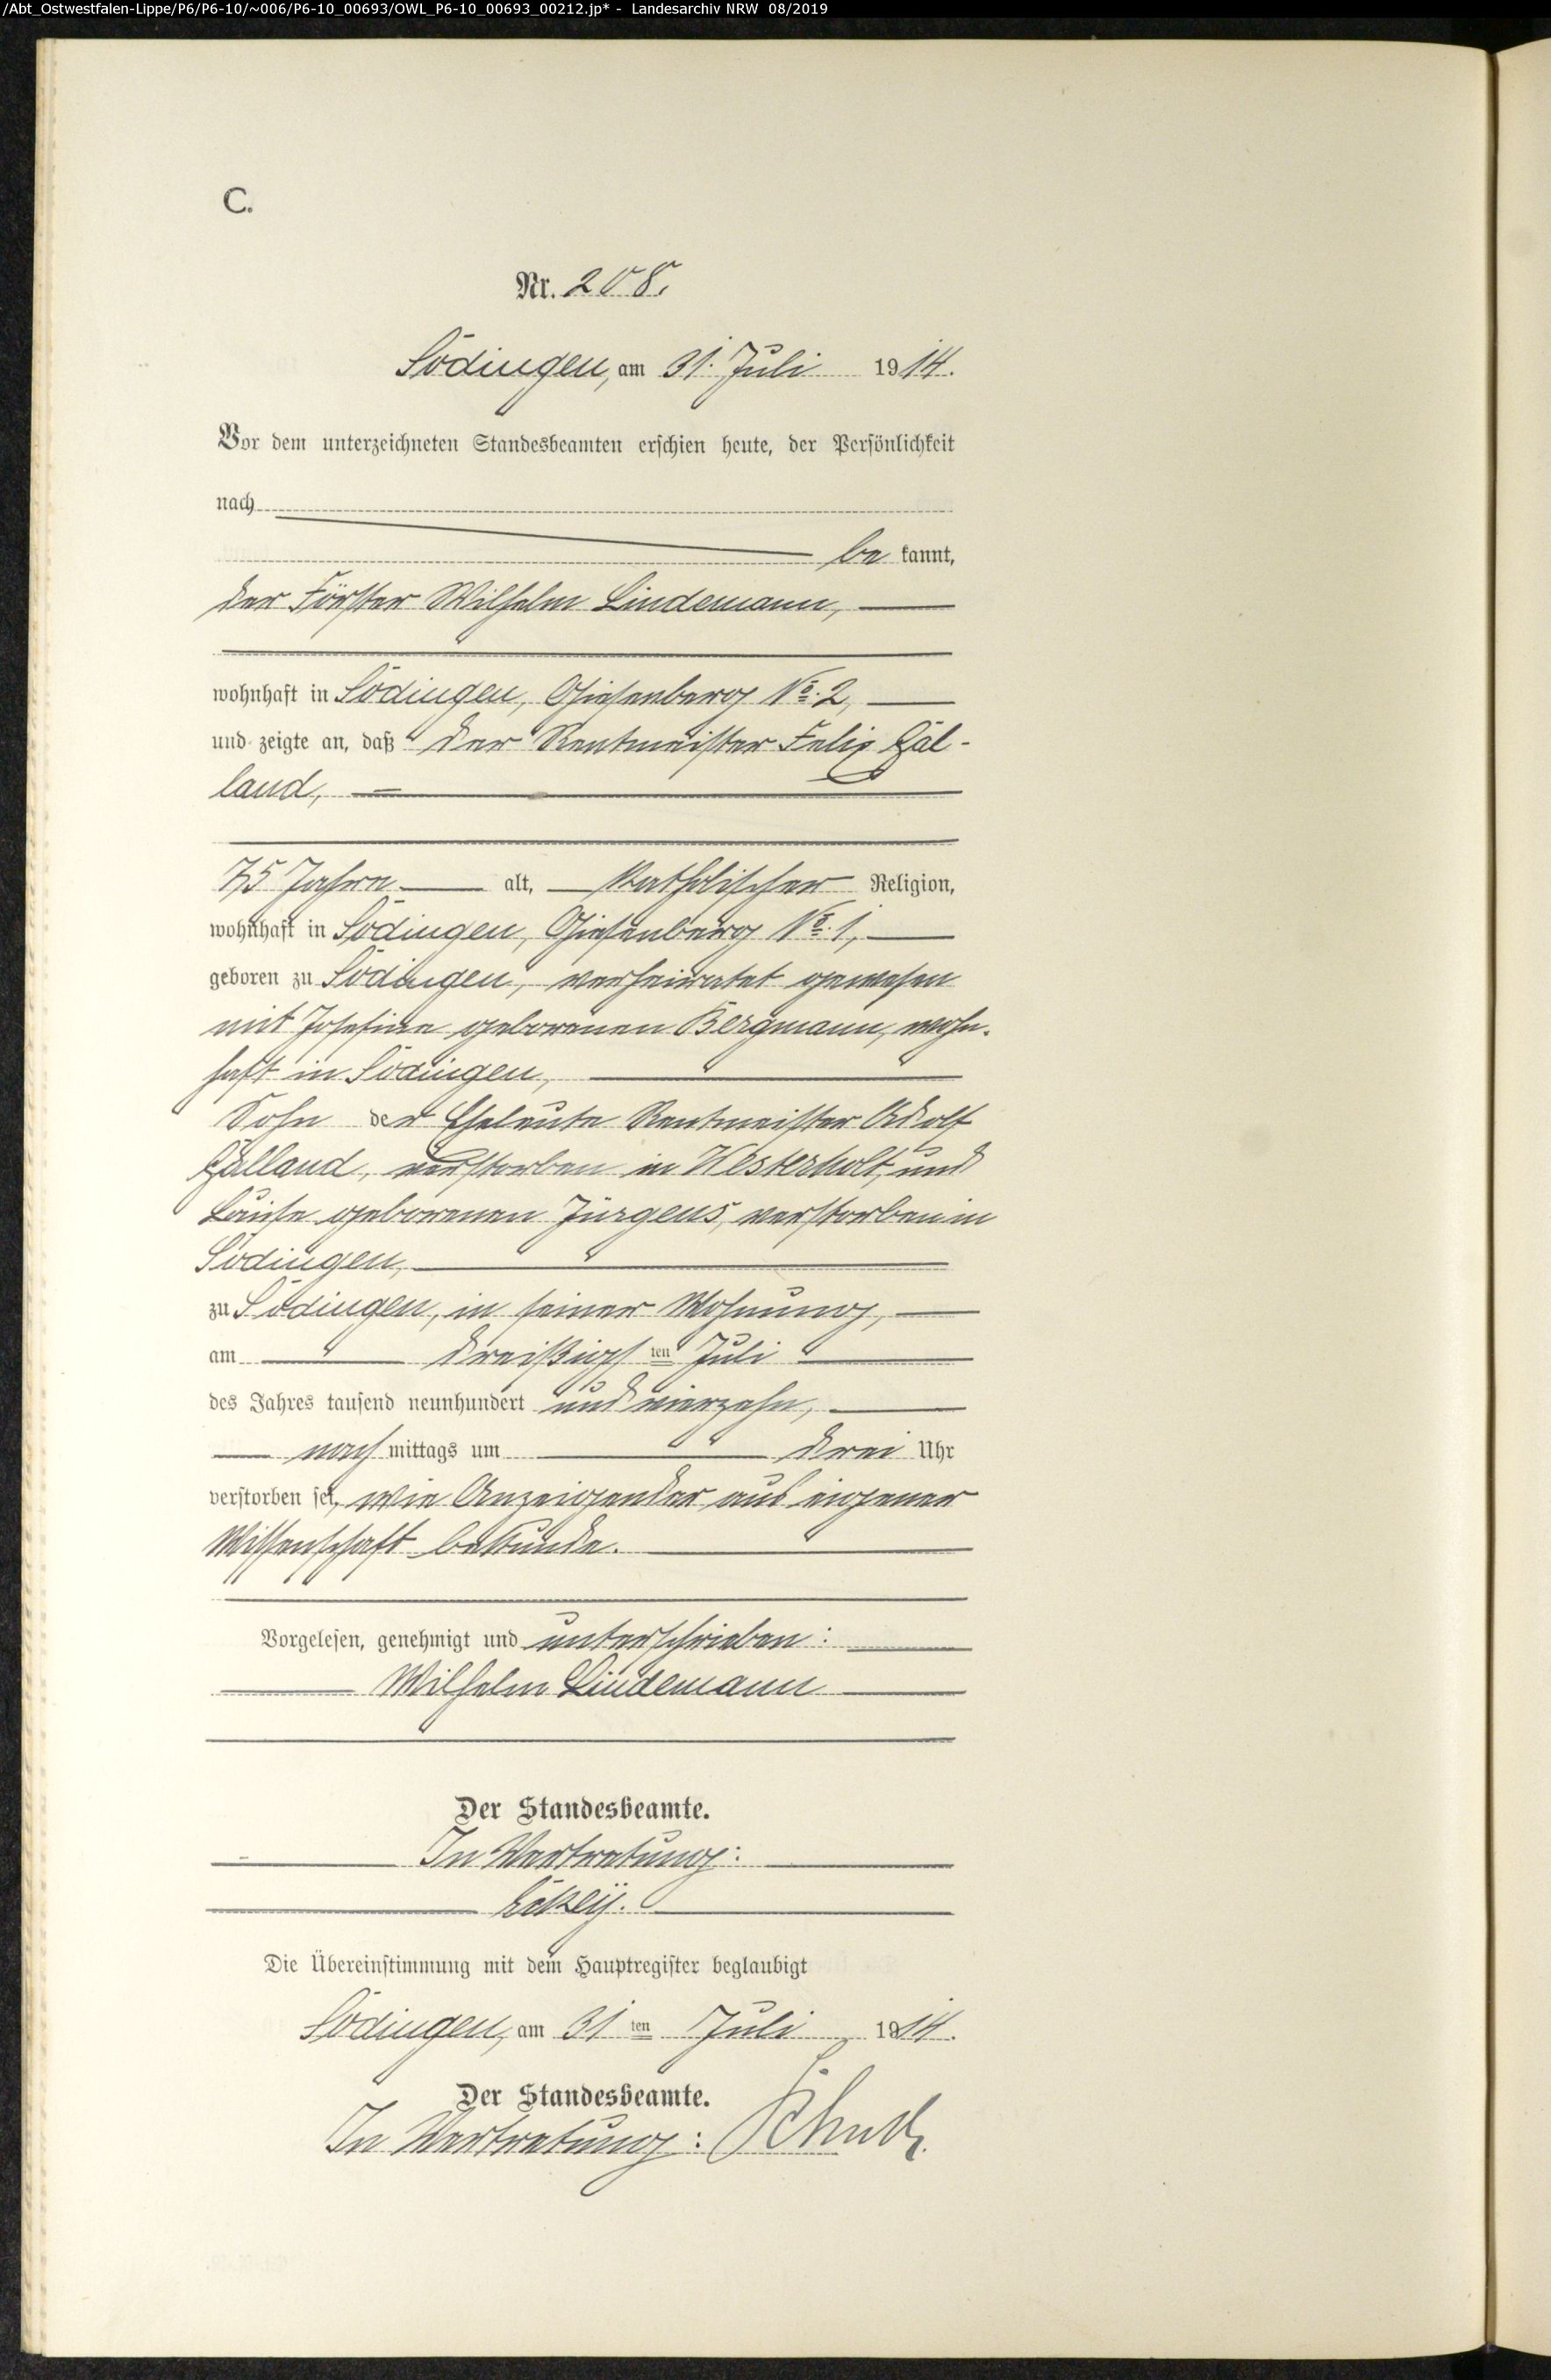 /Abt_Ostwestfalen-Lippe/P6/P6-10/~006/P6-10_00693/OWL_P6-10_00693_00212.jp* - Landesarchiv NRW 08/2019
C.
Nr. 208.
Södingen, am 31. Juli 1914.
Vor dem unterzeichneten Standesbeamten erschien heute, der Persönlichkeit
nach
be kannt,
der Förster Wilhelm Lindemann,
wohnhaft in Södingen, Giesenberg No. 2,
und zeigte an, daß der Rentmeister Felix Gal-
land,
75 Jahre alt, katholischer Religion,
wohnhaft in Södingen, Giesenberg No. 1,
geboren zu Södingen, verheiratet gewesen
mit Josefine geborenen Bergmann, wohn-
haft in Södingen,
Sohn der Eheleute Rentmeister Adolf
Galland, verstorben in Westerholt, und
Luise geborenen Jürgens, verstorben in
Södingen,
zu Södingen, in seiner Wohnung,
am dreißigsten Juli
des Jahres tausend neunhundert und vierzehn,
nach mittags um drei Uhr
verstorben sei, wie Anzeigender aus eigener
Wissenschaft bekunde.
Vorgelesen, genehmigt und unterschrieben:
Wilhelm Lindemann
Der Standesbeamte.
In Vertretung:
Die Übereinstimmung mit dem Hauptregister beglaubigt
Södingen, am 31ten Juli 1914.
Der Standesbeamte.
In Vertretung: